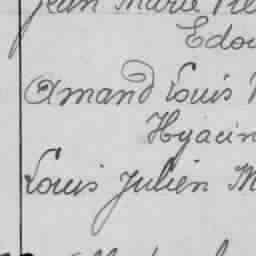 Jean Marie
Edou
Amand Louis
Hyacin
Louis Julien M